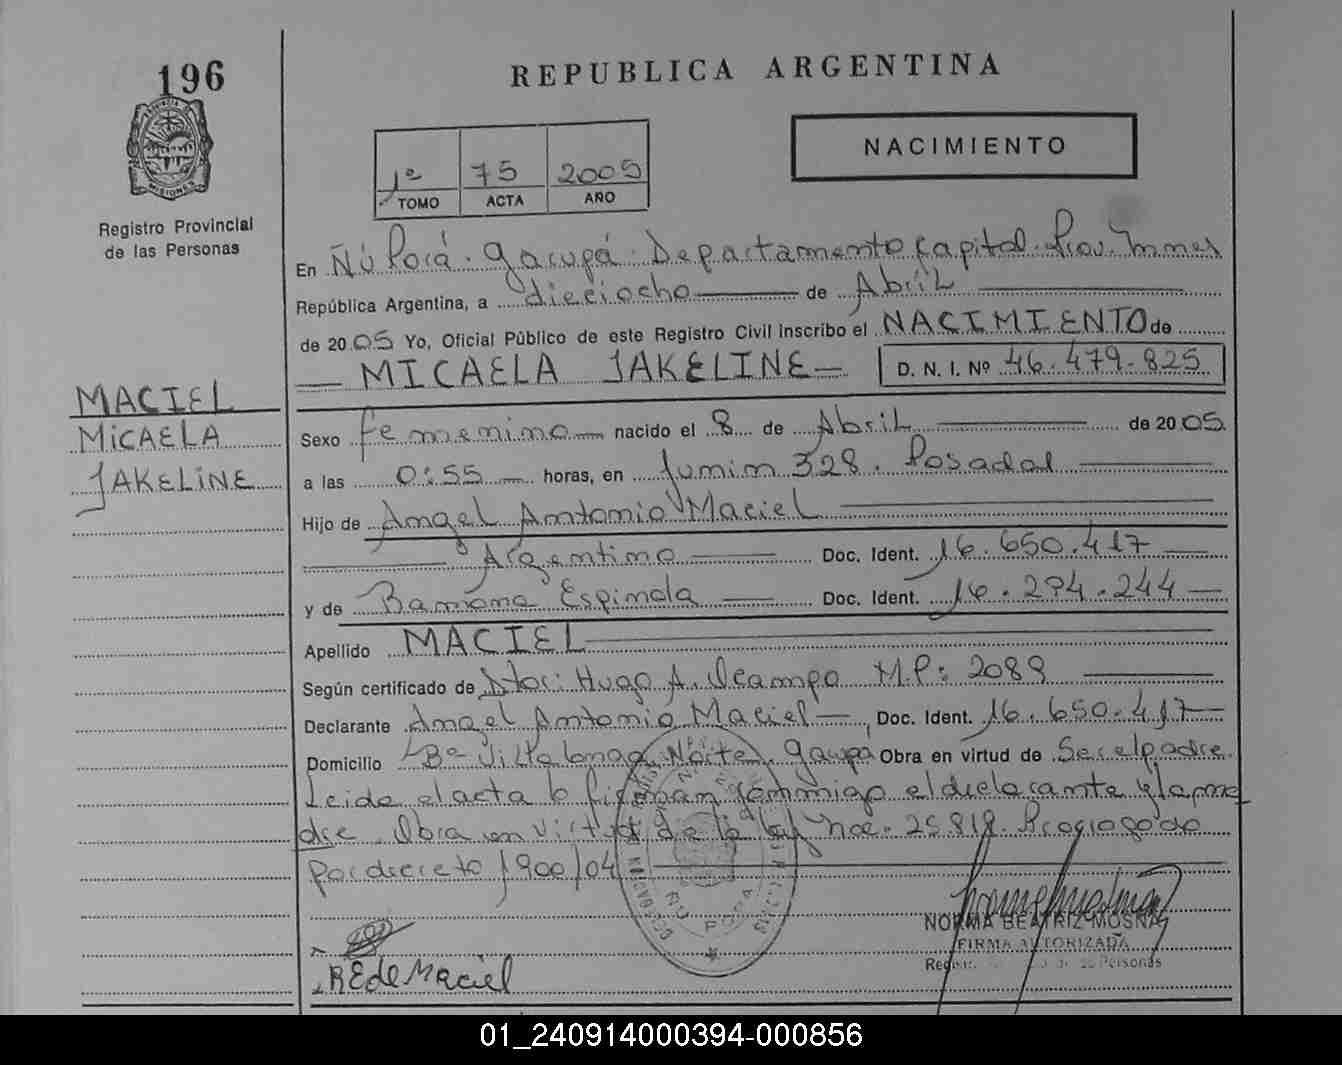 196
REPUBLICA ARGENTINA
NACIMIENTO
1º 75 2005
TOMO ACTA AÑO
MISIONES
Registro Provincial
de las Personas
En Ñú Porá. Garupá. Departamento Capital. Prov. Mnes
República Argentina, a dieciocho de Abril
de 2005 Yo, Oficial Público de este Registro Civil inscribo el NACIMIENTO de
MICAELA JAKELINE D. N. I. Nº 46.479.825
MACIEL
MICAELA
JAKELINE
Sexo femenino nacido el 8 de Abril de 2005
a las 0:55 horas, en Junin 328. Posadas
Hijo de Angel Antonio Maciel
Argentino Doc. Ident. 16.650.417
y de Ramona Espinola Doc. Ident. 16.294.244
Apellido MACIEL
Según certificado de Dtor: Hugo A. Ocampo M.P: 2089
Declarante Angel Antonio Maciel Doc. Ident. 16.650.417
Domicilio Bº Villalonga Norte. Garupá Obra en virtud de Ser el padre.
Leida el acta lo firman conmigo el declarante y la ma
dre. Obra en virtud de la ley nro. 25.819. Prorrogado
por decreto 1900/04
ÑU PORA
NORMA BEATRIZ MOSNA
FIRMA AUTORIZADA
Personas
REdeMaciel
01_240914000394-000856